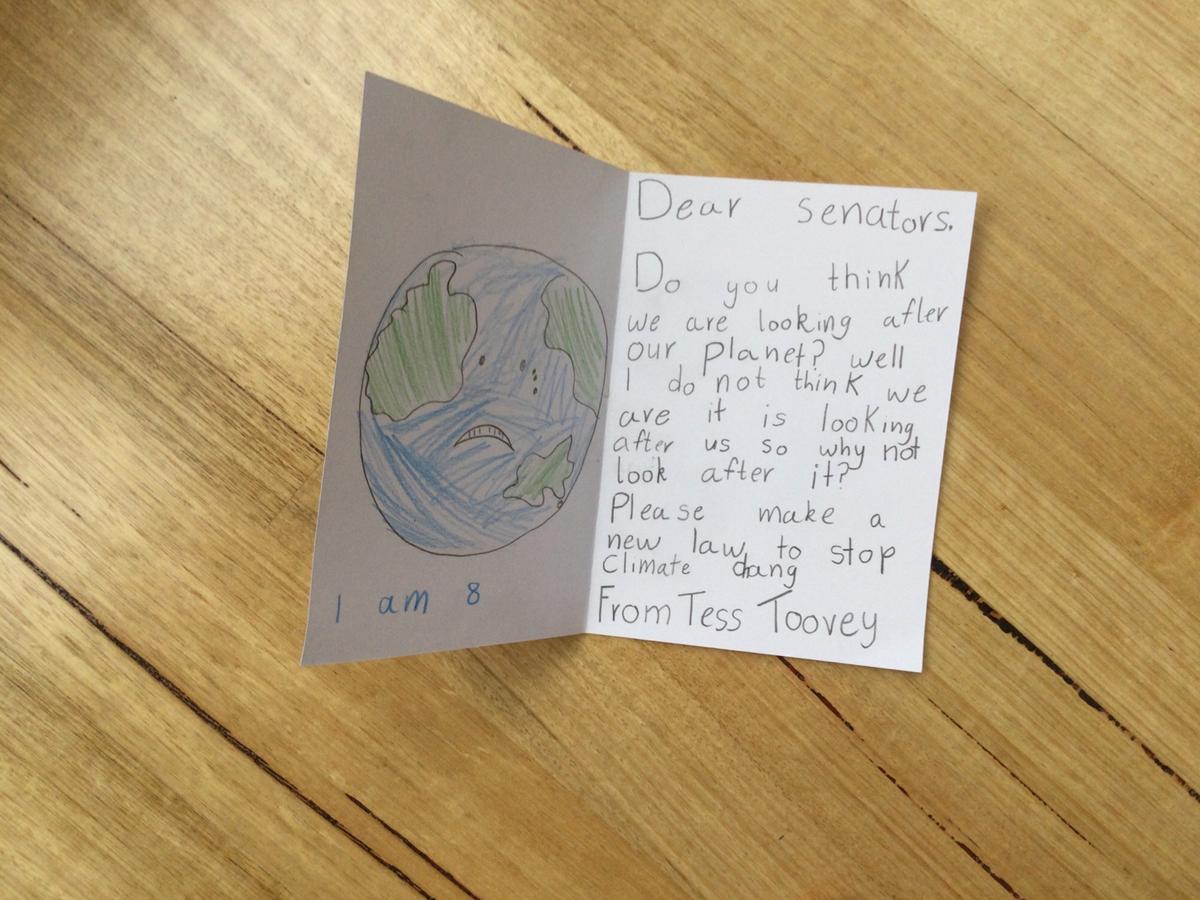 I am 8
Dear senators.
Do you think
we are looking after
our planet? well
I do not think we
are it is looking
after us so why not
look after it?
Please make a
new law to stop
Climate chang
From Tess Toovey